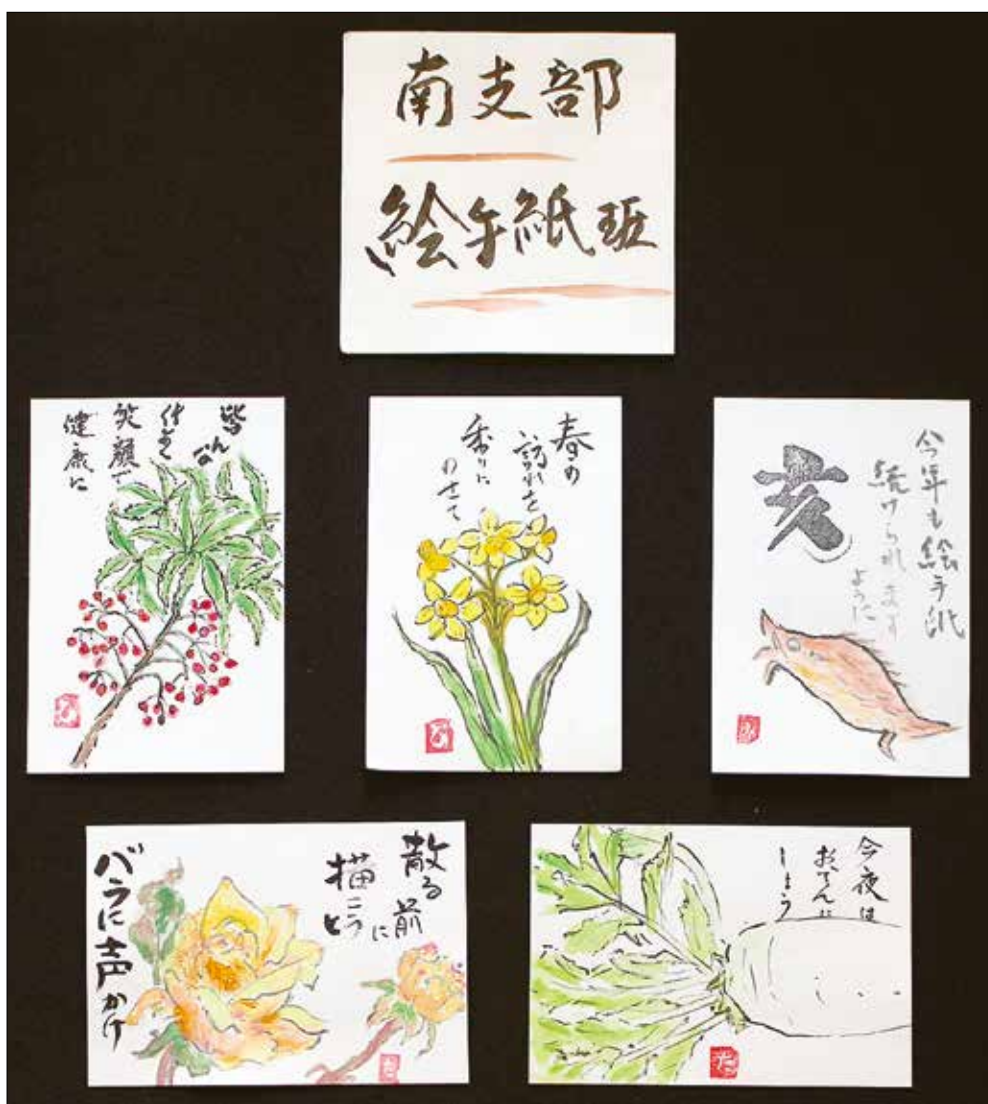 南支部
絵手紙班
皆さん
仲良く
笑顔で
健康に
春の
訪れを
香りに
のせて
今年も絵手紙
続けられます
ように
亥
散る前に
描こうと
バラに声かけ
今夜は
おでんに
しよう